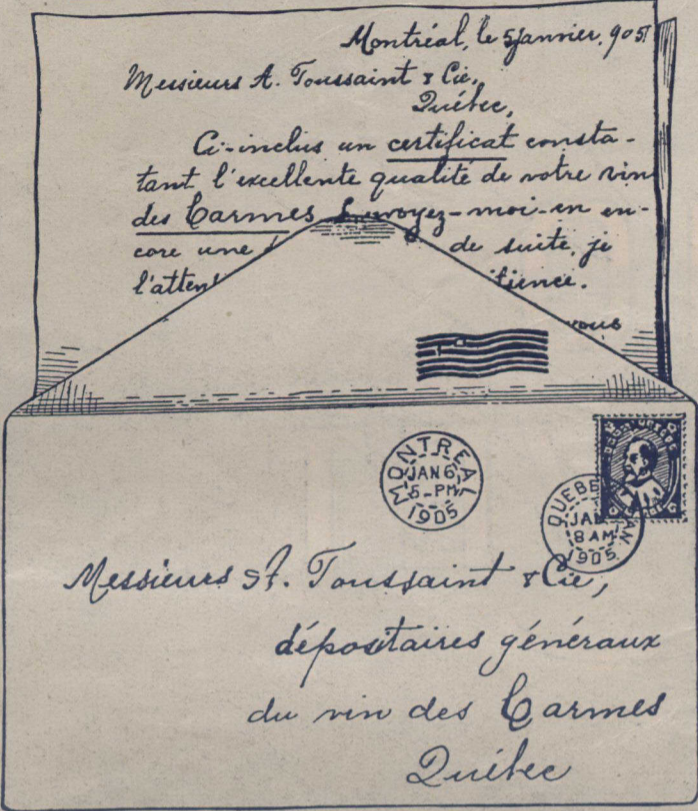 Montréal, le 5 janvier, 905
Messieurs A. Toussaint & Cie,
Québec,
Ci-inclus un certificat consta-
tant l'excellente qualité de votre vin
des Carmes Envoyez-moi-en en-
core une de suite, je
l'atten tience.
vous
MONTREAL
JAN 6
5-PM
1905
QUEBEC CAN.
JA
8 AM
1905
Messieurs A. Toussaint & Cie,
dépositaires généraux
du vin des Carmes
Québec